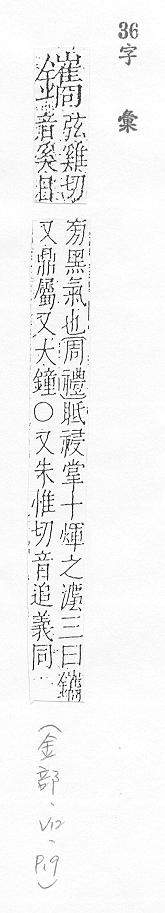 36 字 彙
鑴
弦雞切
音奚日
旁黑氣也周禮眡祲掌十煇之灋三曰鑴
又鼎屬又大鐘○又朱惟切音追義同
(金部、V12、P19)